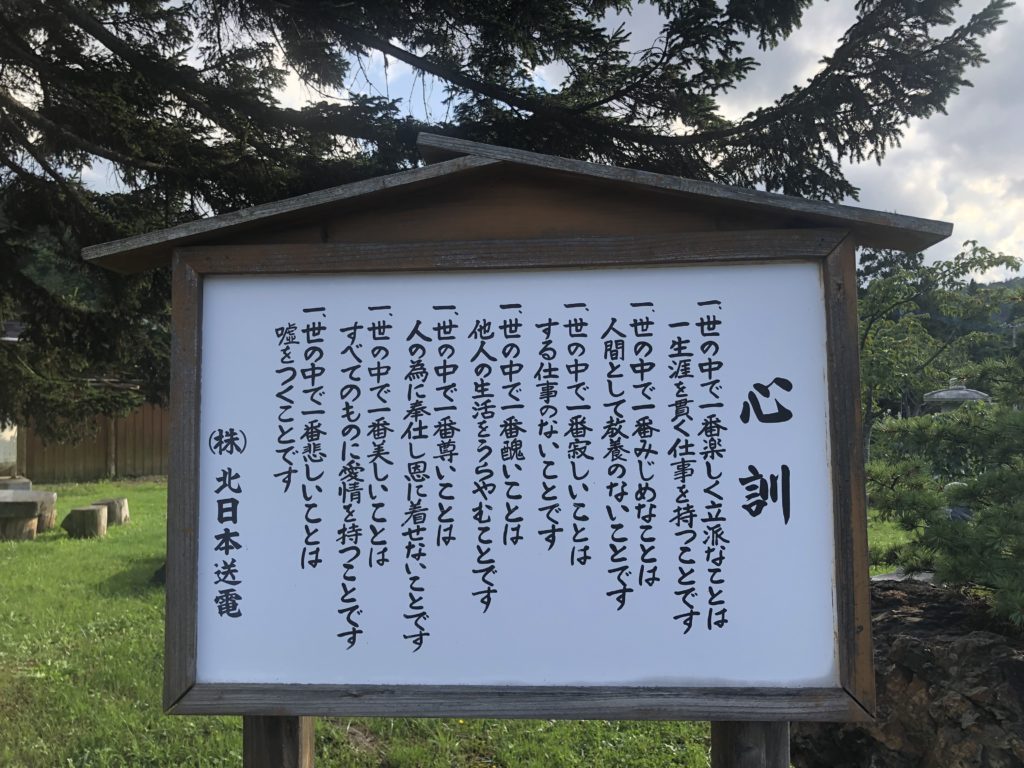 心訓
一、世の中で一番楽しく立派なことは
一生涯を貫く仕事を持つことです
一、世の中で一番みじめなことは
人間として教養のないことです
一、世の中で一番寂しいことは
する仕事のないことです
一、世の中で一番醜いことは
他人の生活をうらやむことです
一、世の中で一番尊いことは
人の為に奉仕し恩に着せないことです
一、世の中で一番美しいことは
すべてのものに愛情を持つことです
一、世の中で一番悲しいことは
嘘をつくことです
㈱北日本送電